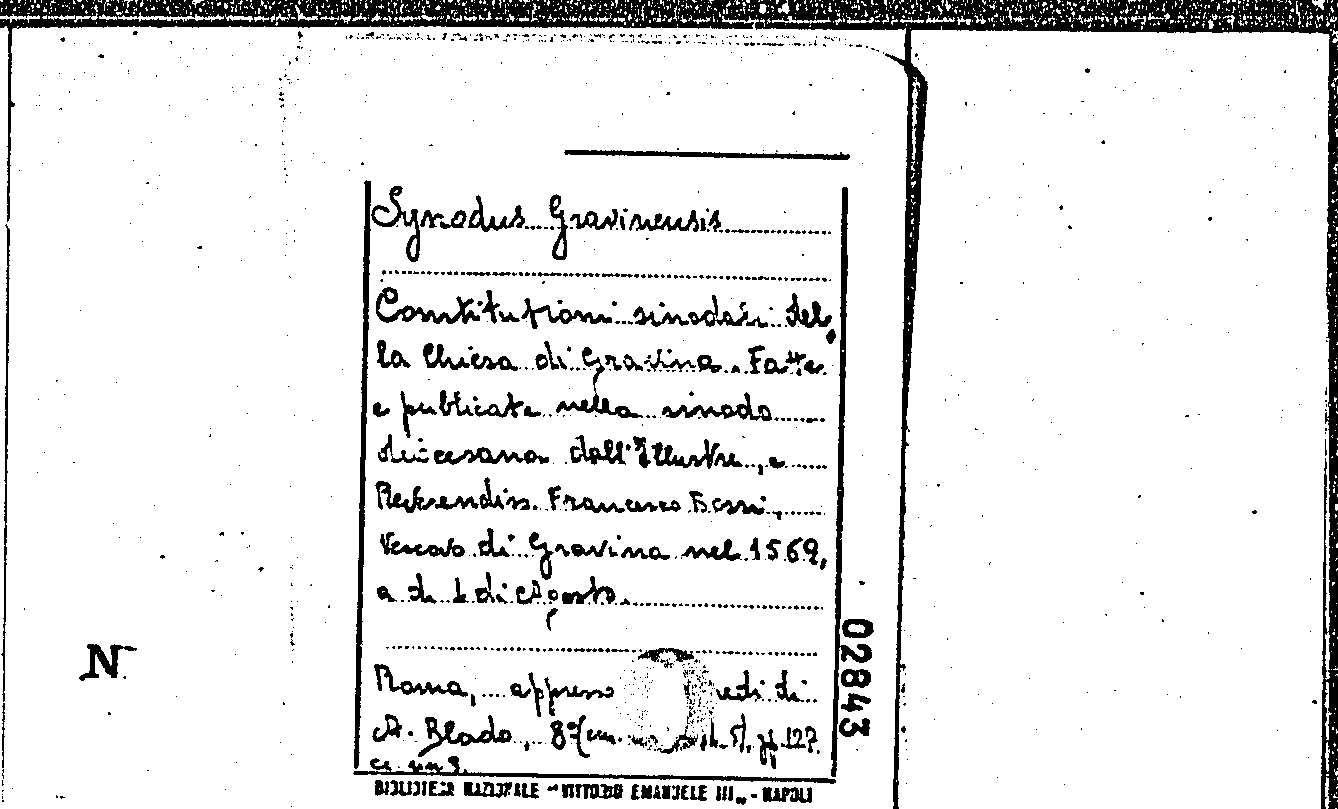 Synodus Gravinensis
Constitutioni sinodali del,
la Chiesa di Gravina. Fatte
e publicate nella sinodo
diocesana dall'Illustre, e
Reverendiss. Francesco Bossi,
Vescovo di Gravina nel 1569,
a di 1 di Agosto.
Roma, appresso redi di
A. Blado, 8° pp. 127.
BIBLIOTECA NAZIONALE "VITTORIO EMANUELE III" - NAPOLI
02843
N